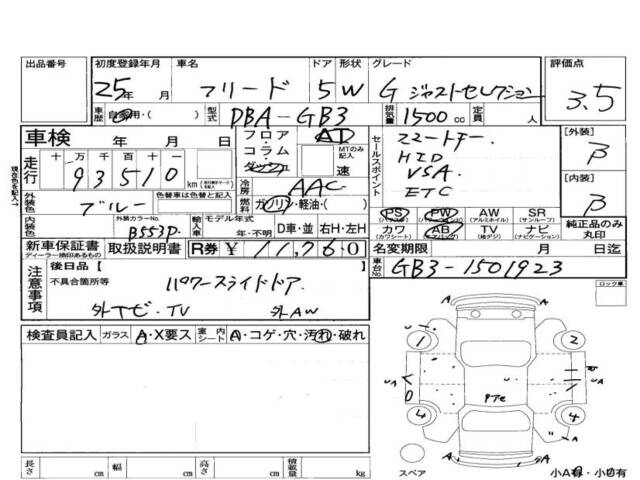 出品番号 初度登録年月 車名 ドア 形状 グレード 評価点
25年 月 フリード 5 W G ジャストセレクション 3.5
車歴 自家用・( ) 型式 DBA-GB3 排気量 1500 cc 定員 人
車検 年 月 日 フロア・コラム AT セールスポイント スマートキー. [外装]
走行 十 万 千 百 十 一 MTのみ記入 HID B
93510 km 速 VSA.
冷房 AAC ETC [内装]
外装色 車色は色替と記入 ブルー 燃料 ガソリン・軽油・( ) B
内装色 外装カラーNo. B553P. 輸入車 モデル年式 年・不明 D車・並 右H・左H
PS PW AW SR
(パワステ) (パワーウィンドウ) (アルミホイル) (サンルーフ)
カワ AB TV ナビ 純正品のみ丸印
(カワシート) (エアバッグ) (ナビゲーション)
新車保証書 取扱説明書 R券 ¥ 11,760 名変期限 月 日迄
ディーラー捺印あるもの
車台No. GB3-1501923
注意事項 後日品【
不具合箇所等 パワースライドドア. ロック車
外ナビ・TV 外AW
検査員記入 ガラス A・X要ス 室内シート A・コゲ・穴・汚れ・破れ
1 2
UA UA
4 4
A A
長さ cm 幅 cm 高さ cm 積載量 kg
スペア 小A有・小U有